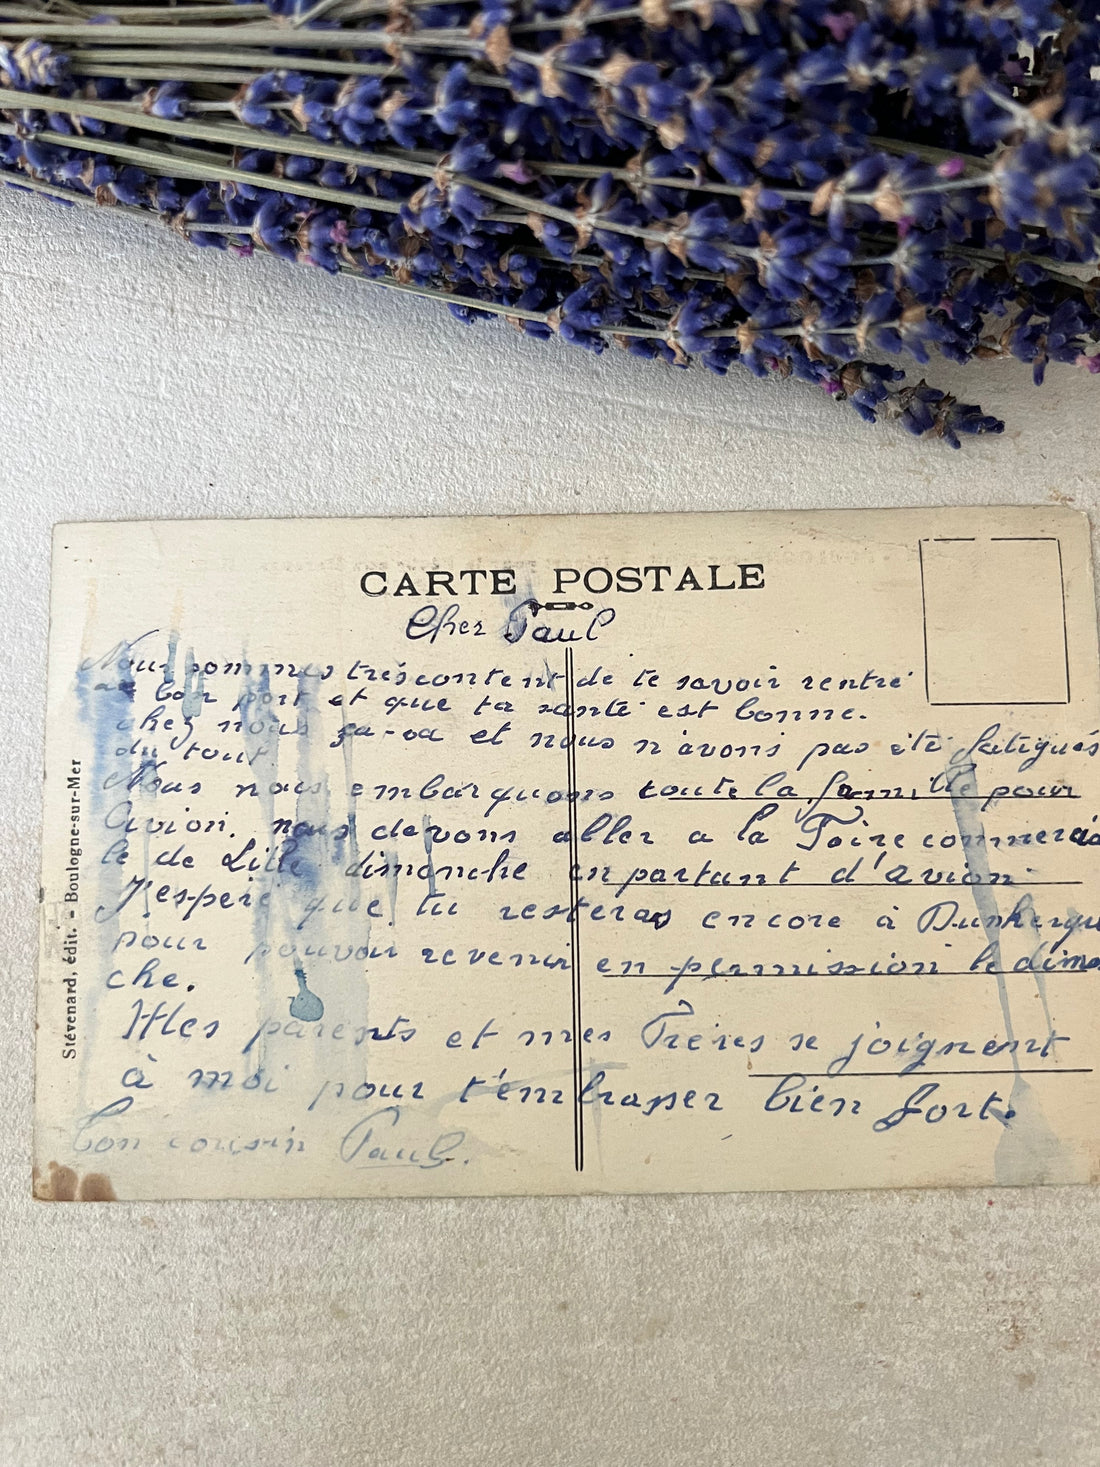 CARTE POSTALE
Cher Paul
Nous sommes très content de te savoir rentré
au bon port et que ta santé est bonne.
chez nous ça-va et nous n'avons pas été fatigués
du tout
Nous nous embarquons toute la famille pour
Avion. nous devons aller a la Foire commercia
le de Lille dimanche en partant d'Avion.
J'espère que tu resteras encore à Dunkerque
pour pouvoir revenir en permission le diman
che.
Mes parents et mes Frères se joignent
à moi pour t'embrasser bien fort.
Ton cousin Paul.
Stévenard, édit. - Boulogne-sur-Mer